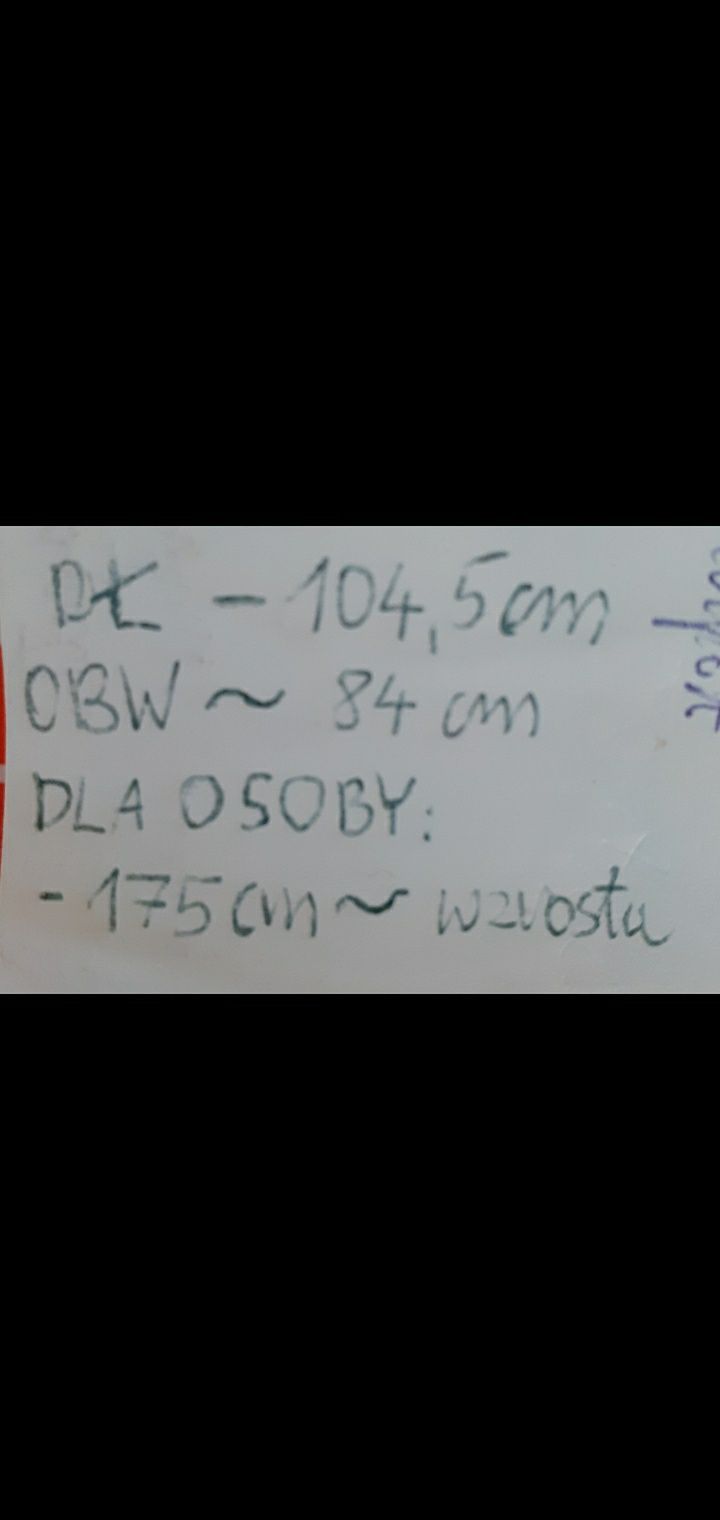 DŁ - 104,5cm
OBW ~ 84 cm
DLA OSOBY:
- 175cm ~ wzrostu